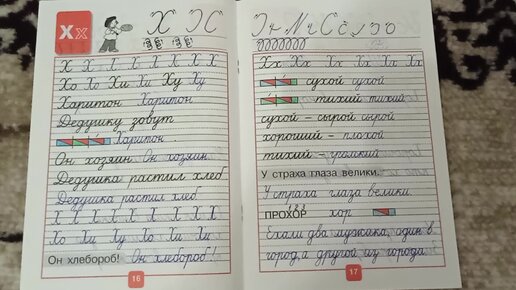 Х х
Х Х С
Х Х Х Х Х Х Х Х
Хо Хо Хи Хи Ху Ху
Харитон Харитон
Дедушку зовут
Харитон.
Он хозяин. Он хозяин.
Дедушка растил хлеб
Дедушка растил хлеб
Х Х Х Х Х Х Х Х
Хо Хи Ху Хо Хи Хи
Он хлебороб! Он хлебороб!
16
Хх Хх Хх Хх Хх Хх
сухой сухой
тихий тихий
сухой – сырой сырой
хороший – плохой
тихий – громкий
У страха глаза велики.
У страха глаза велики.
ПРОХОР хор
Ехали два мужика, один в
город, а другой из города.
17